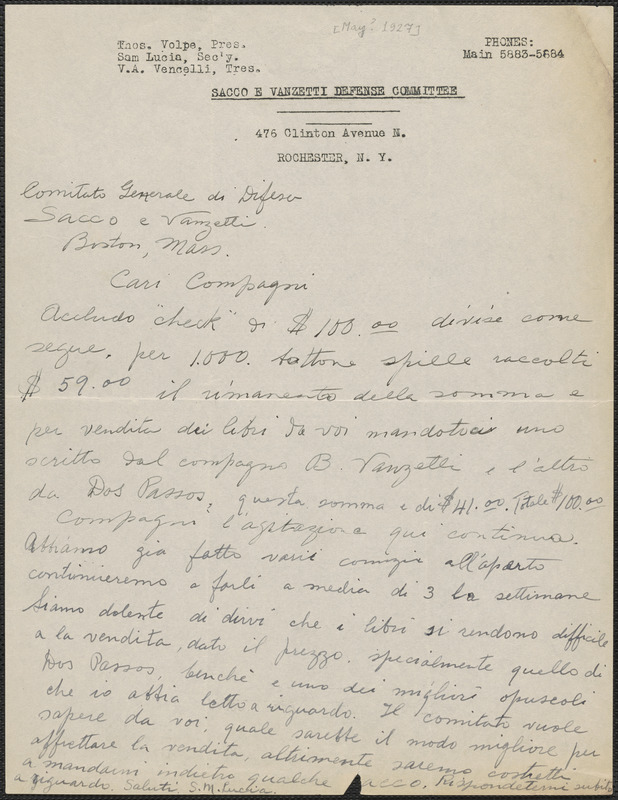 [May? 1927]
Thos. Volpe, Pres.
Sam Lucia, Sec'y.
V.A. Vencelli, Tres.
PHONES:
Main 5683-5684
SACCO E VANZETTI DEFENSE COMMITTEE
476 Clinton Avenue N.
ROCHESTER, N. Y.
Comitato Generale di Difesa
Sacco e Vanzetti.
Boston, Mass.
Cari Compagni
Accludo "check" di $100.00 divise come
segue, per 1.000. bottone spille raccolti
$59.00 il rimanento della somma e
per vendita dei libri da voi mandatoci uno
scritto dal compagno B. Vanzetti e l'altro
da Dos Passos, questa somma e di $41.00. Totale $100.00
Compagni l'agitazione qui continua.
Abbiamo gia fatto varii comizii all'aperto
continuieremo a farli a media di 3 la settimane
Siamo dolente di dirvi che i libri si rendono difficile
a la vendita, dato il prezzo. specialmente quello di
Dos Passos, benchè e uno dei migliori opuscoli
che io abbia letto a riguardo. Il comitato vuole
sapere da voi, quale sarebbe il modo migliore per
affrettare la vendita, altrimente saremo costretti
a mandarvi indietro qualche pacco. Rispondetemi subito
a riguardo. Saluti, S. M. Lucia.